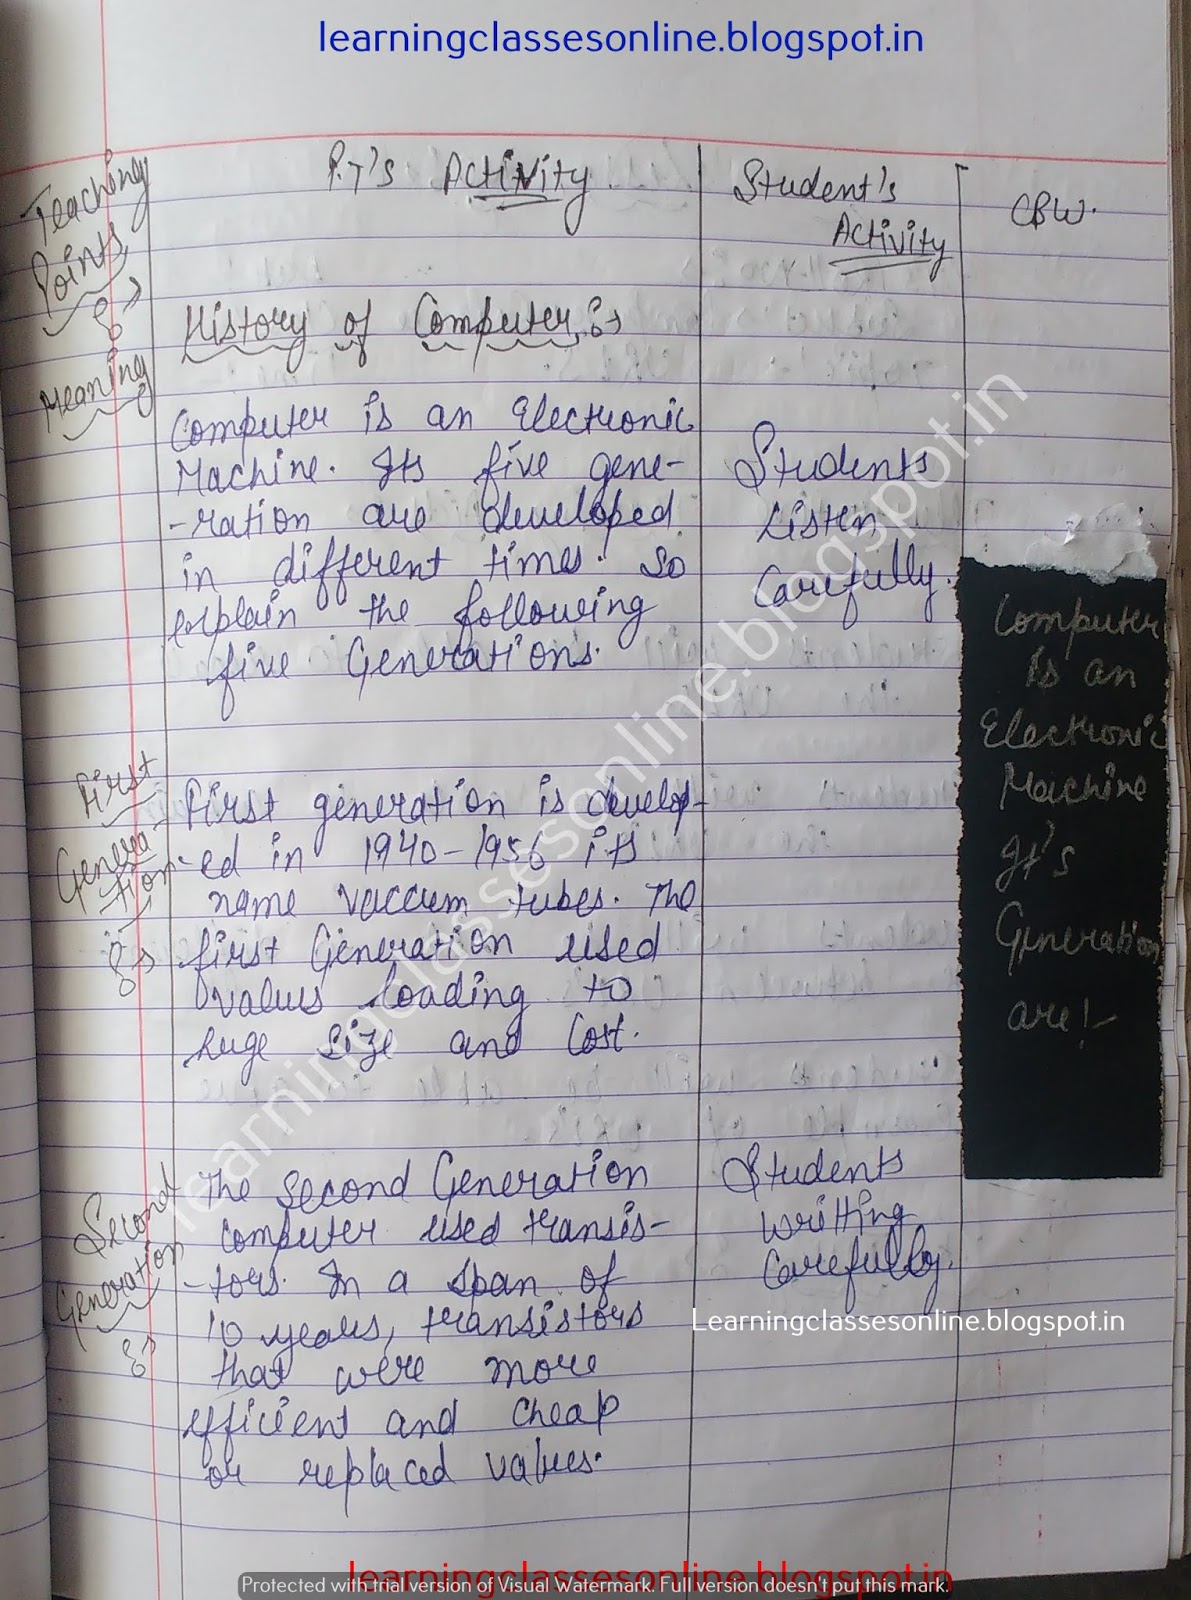 learningclassesonline.blogspot.in
Teaching
Points
Meaning
P.T's Activity
Student's
Activity
CBW.
History of Computer :-
Computer is an Electronic
Machine. Its five gene-
-ration are developed
in different times. So
explain the following
five Generations.
Students
Listen
Carefully.
Computer
is an
Electronic
Machine
It's
Generation
are!-
First
Genera-
-tion
:-
First generation is develop-
-ed in 1940-1956 its
name vaccum tubes. The
first Generation used
values loading to
huge size and Cost.
Second
Generation
:-
The Second Generation
computer used transis-
-tors. In a span of
10 years, transistors
that were more
efficient and cheap
or replaced values.
Students
writting
Carefully.
Learningclassesonline.blogspot.in
learningclassesonline.blogspot.in
learningclassesonline.blogspot.in
Protected with trial version of Visual Watermark. Full version doesn't put this mark.